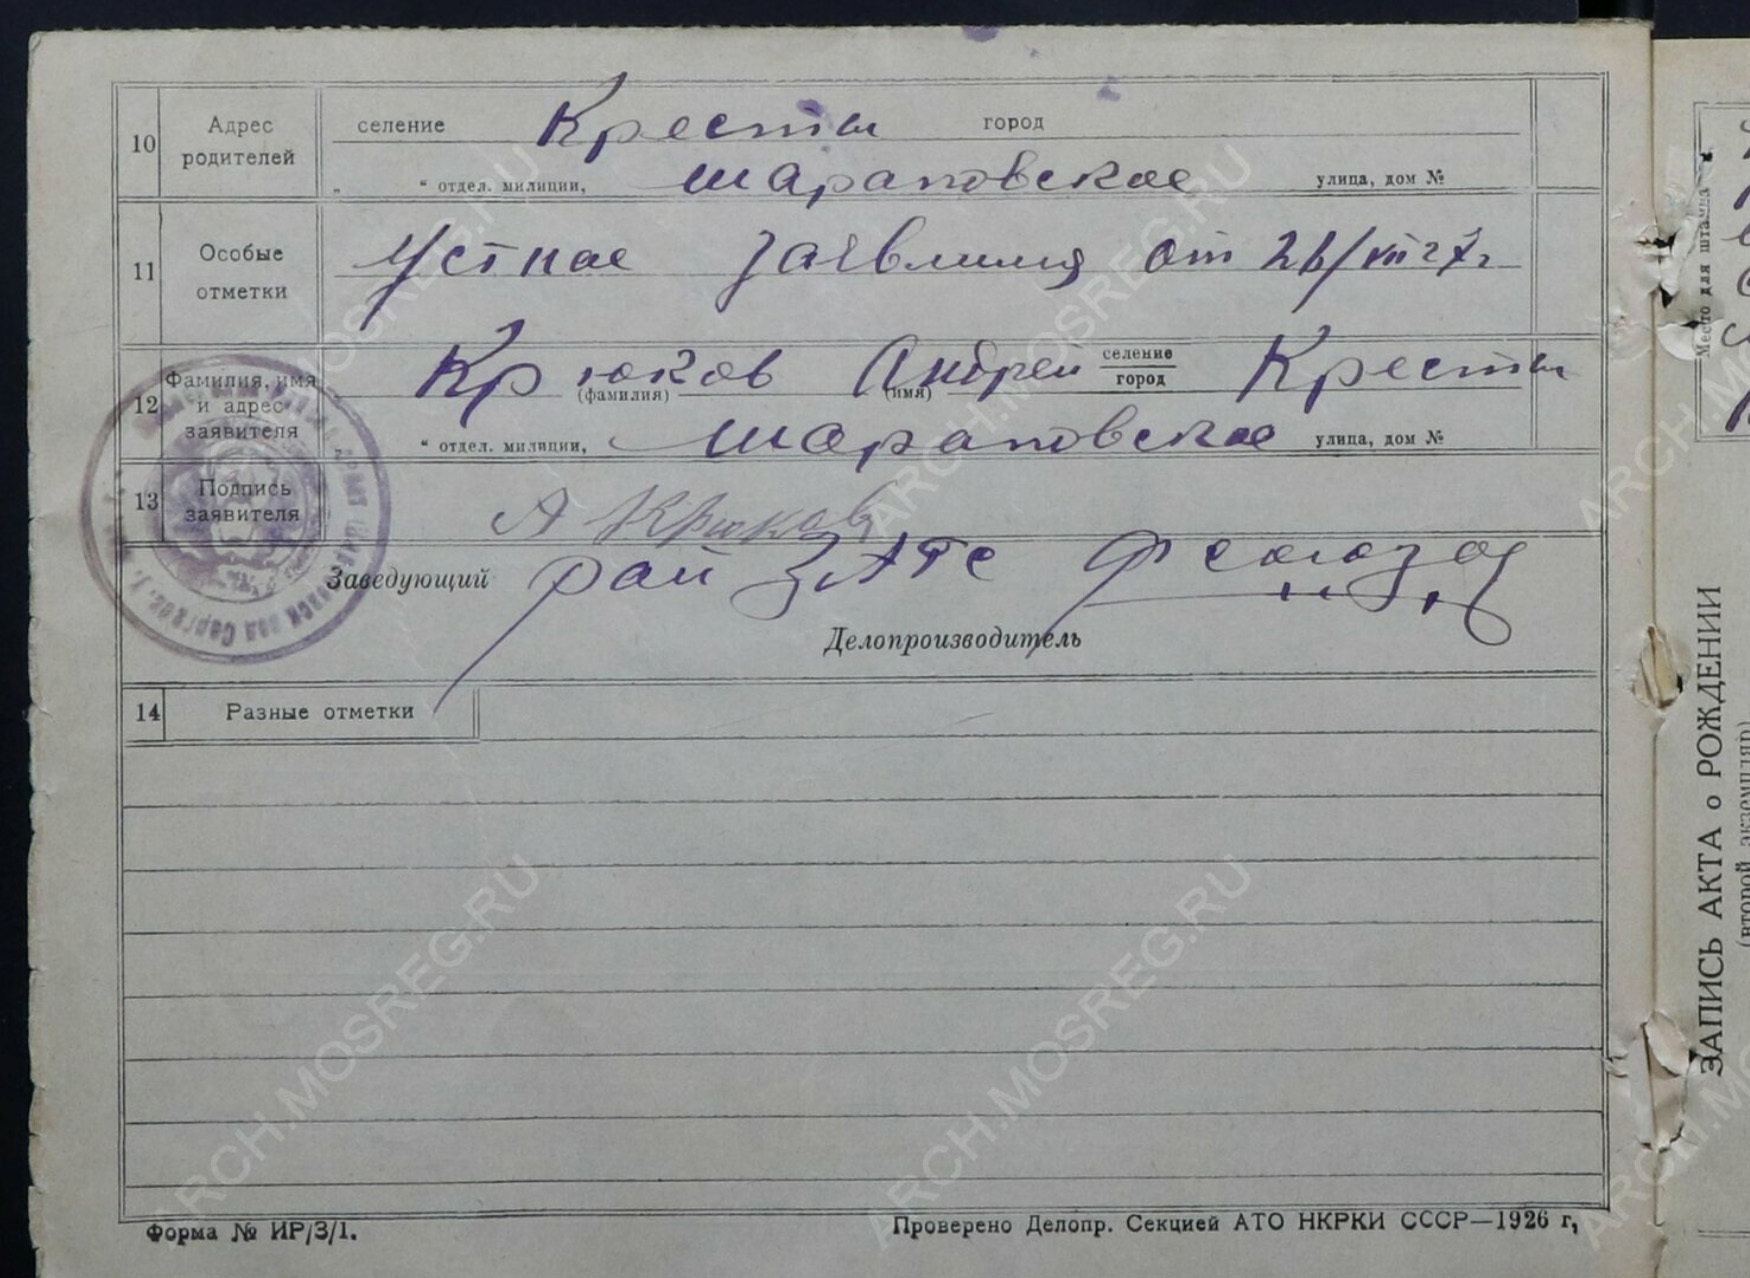 10 Адрес родителей селение Кресты город
„ “ отдел. милиции, Шараповское улица, дом №
11 Особые отметки Устное заявления от 26/VII 27 г
12 Фамилия, имя и адрес заявителя Крюков (фамилия) Андрей (имя) селение город Кресты
„ “ отдел. милиции, Шараповское улица, дом №
13 Подпись заявителя А Крюков
Заведующий рай ЗАГС
Делопроизводитель
14 Разные отметки
Форма № ИР/3/1.
Проверено Делопр. Секцией АТО НКРКИ СССР—1926 г,
Место для штампа
ЗАПИСЬ АКТА о РОЖДЕНИИ
(второй экземпляр)
ARCH.MOSREG.RU
ARCH.MOSREG.RU
ARCH.MOSREG.RU
ARCH.MOSREG.RU